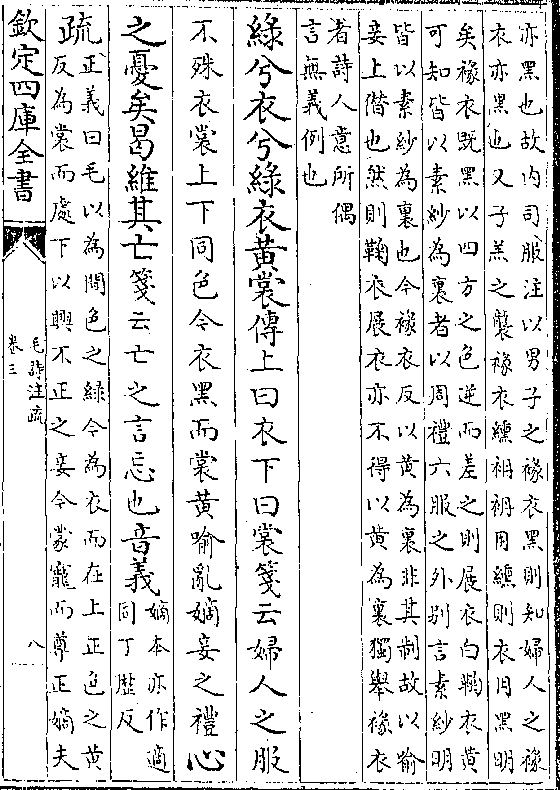 亦黑也故內司服注以男子之褖衣黑則知婦人之褖
衣亦黑也又子羔之襲褖衣纁袡袡用纁則衣用黑明
矣褖衣既黑以四方之色逆而差之則展衣白鞠衣黄
可知皆以素紗為裏者以周禮六服之外别言素紗明
皆以素紗為裏也今褖衣反以黄為裏非其制故以喻
妾上僣也然則鞠衣展衣亦不得以黄為裏獨舉褖衣
者詩人意所偶
言無義例也
綠兮衣兮綠衣黄裳傳上曰衣下曰裳箋云婦人之服
不殊衣裳上下同色今衣黑而裳黄喻亂嫡妾之禮心
之憂矣曷維其亡箋云亡之言忘也音義
嫡本亦作適
同丁歴反
疏
正義曰毛以為間色之綠今為衣而在上正色之黄
反為裳而處下以興不正之妾今蒙寵而尊正嫡夫
欽定四庫全書
毛詩注疏
卷三
八